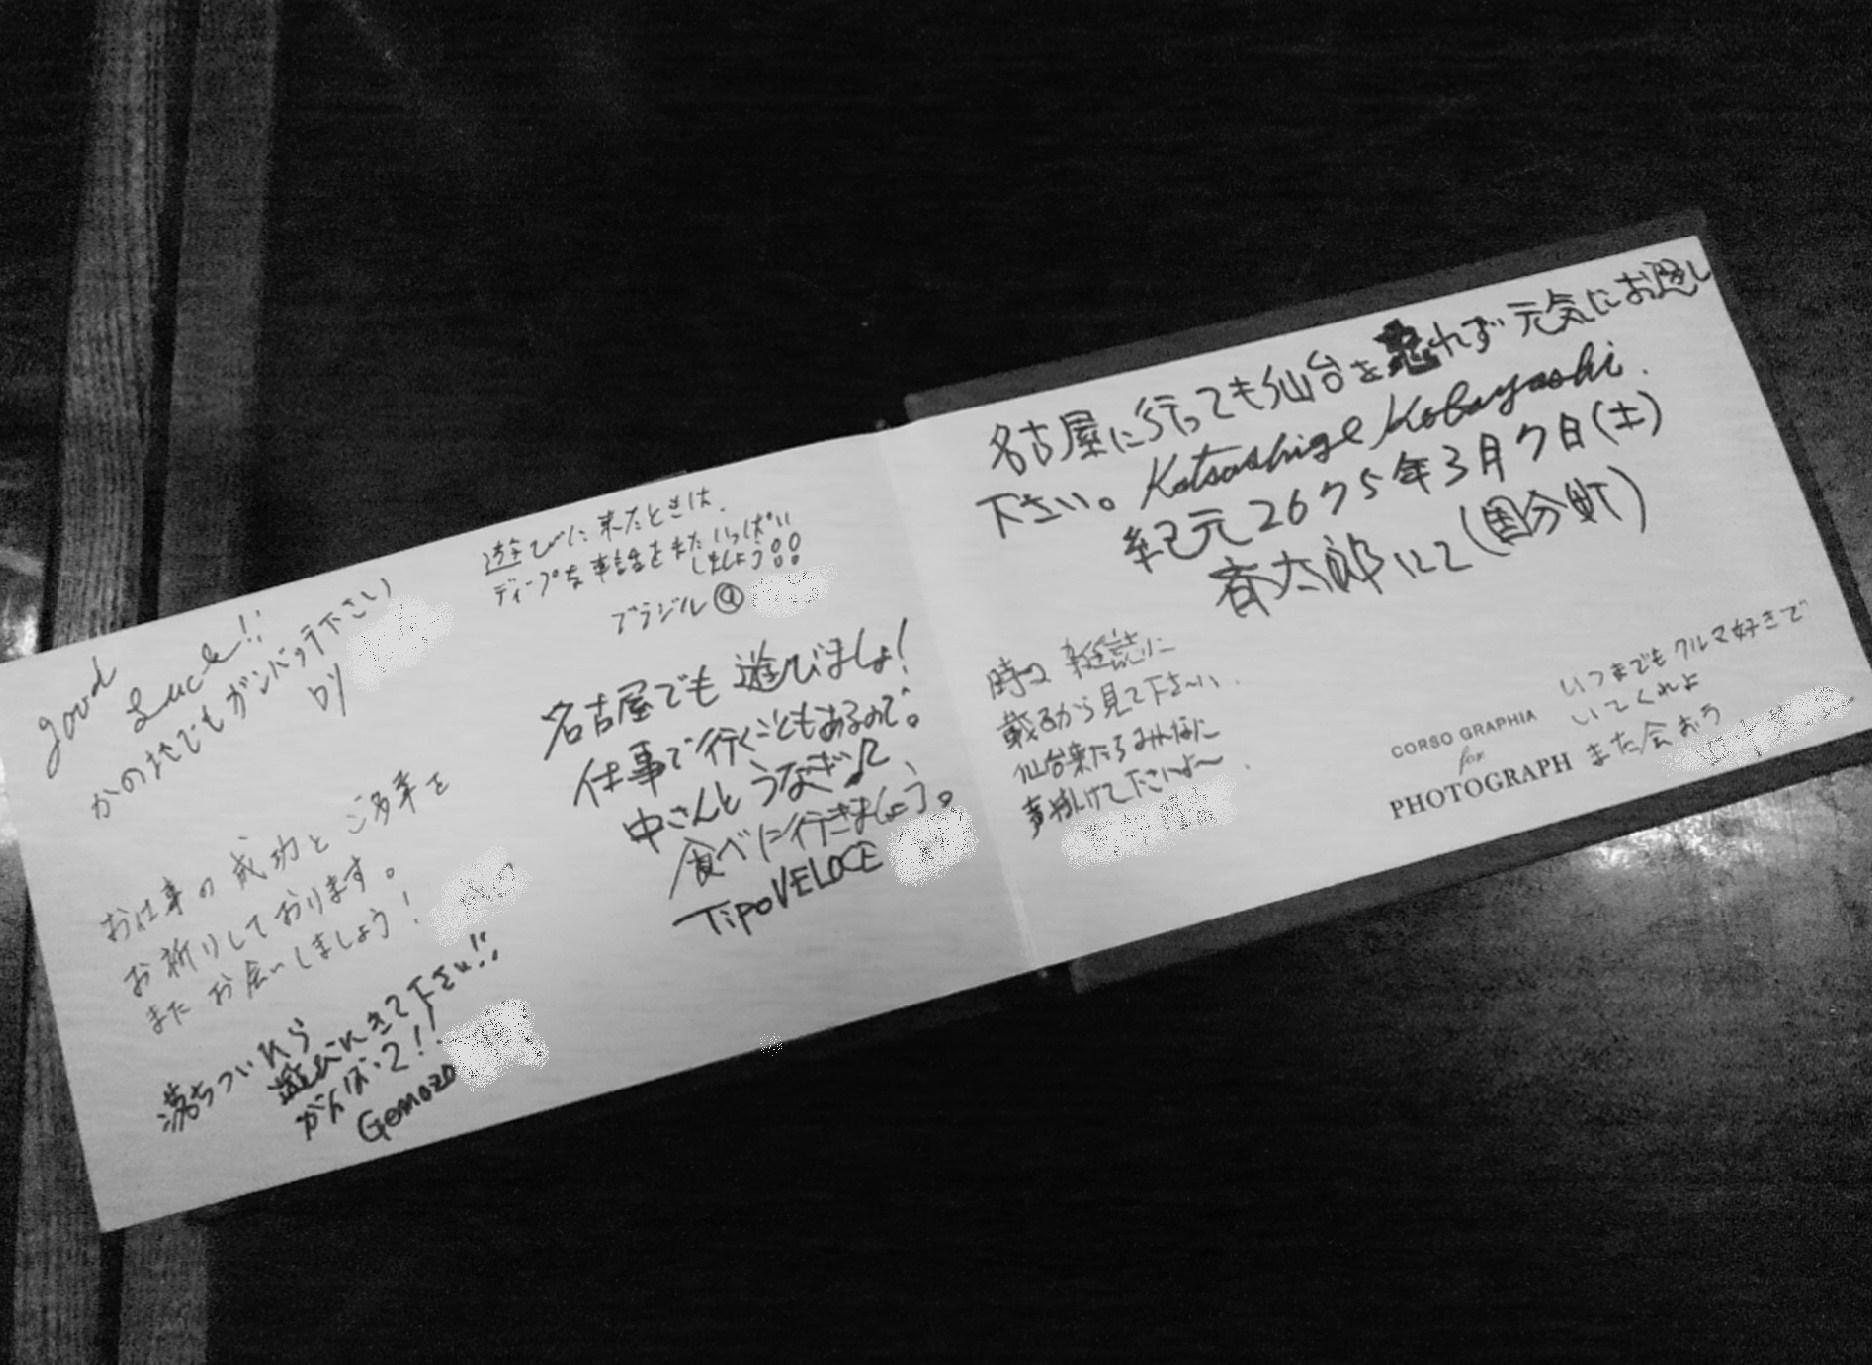 good
Luck!!
かの地でもガンバッテ下さい
by
お仕事の成功とご多幸を
お祈りしております。
またお会いしましょう！
落ちついたら
遊びにきて下さい!!
がんばって!!
Gemozo
遊びに来たときは、
ディープな車話をまたいっぱい
しましょう!!
ブラジル
名古屋でも遊びましょ!
仕事で行くこともあるので。
中さんとうなぎ♪
食べに行きましょう。
TipoVELOCE
名古屋に行っても仙台を忘れず元気にお過し
下さい。Katsushige Kobayashi.
紀元2675年3月7日(土)
斉太郎にて(国分町)
時々雑誌に
載るから見て下さい.
仙台来たらみんなに
声掛けて下さいよ〜.
CORSO GRAPHIA
for
PHOTOGRAPH
いつまでもクルマ好きで
いてくれよ
また会おう